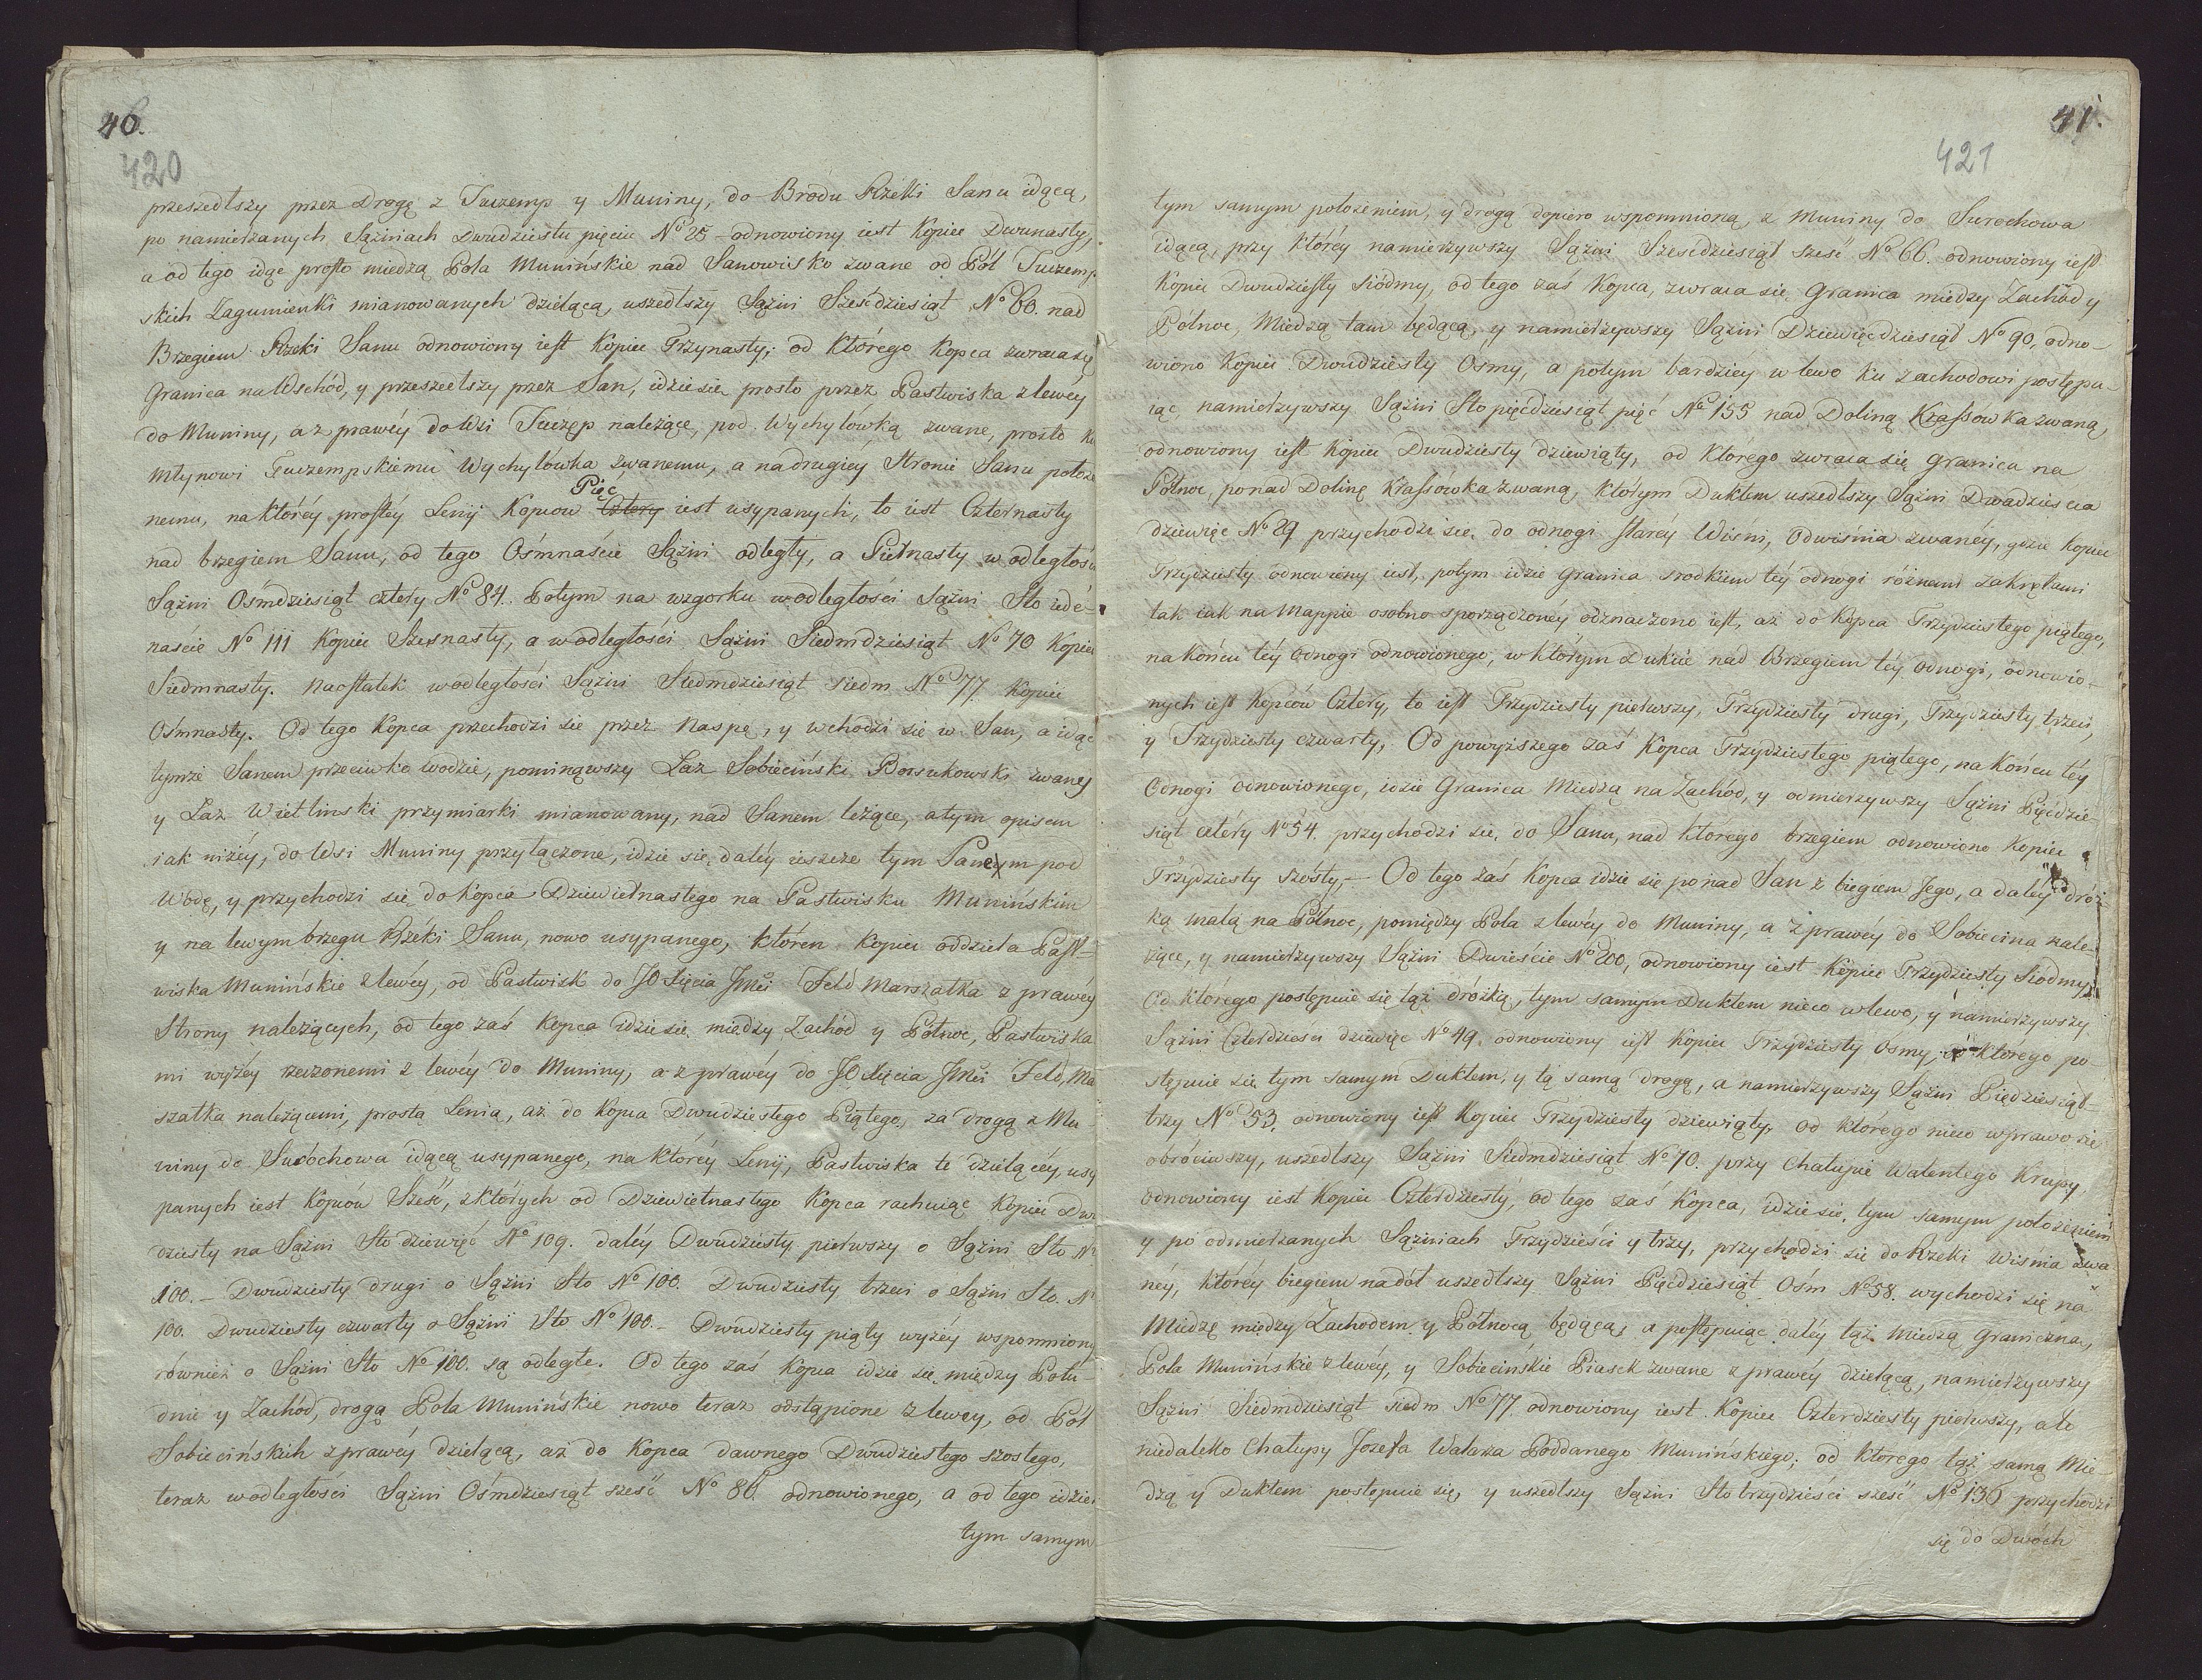 40.
420
przeszedłszy przez Drogę z Tuczemp y Muniny, do Brodu Rzeki Sanu idącą,
po namierzanych Sążniach Dwudziestu pięciu No 25 odnowiony iest Kopiec Dwunasty,
a od tego idąc prosto miedzą Pola Munińskie nad Sanowisko zwane od Pól Tuczemp-
skich Zagumienki mianowanych dzielącą, uszedłszy Sążni Sześćdziesiąt No 60. nad
Brzegiem Rzeki Sanu odnowiony iest Kopiec Trzynasty; od którego Kopca zwraca się
Granica na Wschód, y przeszedłszy przez San, idzie się prosto przez Pastwiska z lewéy
do Muniny, a z prawéy do Wsi Tuczęp należące, pod Wychylówką zwane, prosto ku
Młynowi Tuczempskiemu Wychylówka zwanemu, a na drugiéy Stronie Sanu położo
Pięc
nemu, na któréy prostéy Lenij Kopcow Cztery iest usypanych, to iest Czternasty
nad brzegiem Sanu, od tego Ośmnaście Sążni odległy, a Piętnasty w odległości
Sążni Ośmdziesiąt cztéry No 84. Potym na wzgorku w odległości Sążni Sto iede-
naście No 111 Kopiec Szesnasty, a w odległości Sążni Siedmdziesiąt No 70 Kopiec
Siedmnasty. Naostatek w odległości Sążni Siedmdziesiąt siedm No 77. Kopiec
Ośmnasty. Od tego Kopca przechodzi się przez Naspę, y wchodzi się w San, a idąc
tymże Sanem przeciwko wodzie, pominąwszy Łaz Sobieciński Borsukowski zwany
y Łaz Wietlinski przymiarki mianowany, nad Sanem leżące, a tym opisem
iak niżéy, do Wsi Muniny przyłączone, idzie się daléy ieszcze tym Sanem pod
Wodę, y przychodzi się do Kopca Dziewiętnastego na Pastwisku Munińskim
y na lewym brzegu Rzéki Sanu, nowo usypanego, któren Kopiec oddziela Past-
wiska Munińskie z lewéy, od Pastwisk do JO Xięcia JMci Feld Marszałka z prawéy
Strony należących, od tego zaś Kopca idzie się między Zachód y Północ, Pastwiska
mi wyżéy rzeczonemi z lewéy do Muniny, a z prawéy do JO Xięcia JMci Feld Mar
szałka należącemi, prostą Lenią, aż do Kopca Dwudziestego Piątego, za drogą z Mu-
niny do Surochowa idącą usypanego, na któréy Lenij, Pastwiska te dzieląccéy, usy
panych iest Kopców Sześć, z których od Dziewiętnastego Kopca rachuiąc Kopiec Dwu
dziesty na Sążni Sto dziewięć No 109. daléy Dwudziesty pierwszy o Sążni Sto No
100. – Dwudziesty drugi o Sążni Sto No 100. Dwudziesty trzeci o Sążni Sto. No
100. Dwudziesty czwarty o Sążni Sto No 100. – Dwudziesty piąty wyżéy wspomniony
również o Sążni Sto No 100. są odległe. Od tego zaś Kopca idzie się między Połu-
dnie y Zachód, drogą Pola Munińskie nowo teraz odstąpione z lewey, od Pól
Sobiecińskich z prawéy dzielącą, aż do Kopca dawnego Dwudziestego szostego,
teraz w odległości Sążni Ośmdziesiąt sześć No 86 odnowionego, a od tego idzie
tym samym
41.
421
tym samym położeniem, y drogą dopiero wspomnioną, z Muniny do Surochowa
idącą, przy któréy namierzywszy Sążni Sześćdziesiąt sześć No 66. odnowiony iest
Kopiec Dwudziesty siódmy, od tego zaś Kopca, zwraca się Granica między Zachód y
Północ, Miedzą tam będącą, y namierzywszy Sążni Dziewięćdziesiąt No 90, odno-
wiono Kopiec Dwudziesty Osmy, a potym bardziey w lewo ku zachodowi postępu-
iąc, namierzywszy Sążni Sto pięćdziesiąt pięć No 155 nad Doliną Krassówka zwaną,
odnowiony iest Kopiec Dwudziesty dziewiąty, od ktorego zwraca się Granica na
Północ, ponad Dolinę Krassówka zwaną, którym Duktem uszedłszy Sążni Dwadziescia
dziewięc No 29 przychodzi się do odnogi staréy Wiśni, Odwiśnia zwanéy, gdzie Kopiec
Trzydziesty odnowiony iest, potym idzie Granica srodkiem téy odnogi różnemi zakrętami
tak iak na Mappie osobno sporządzoney odznaczono iest, aż do Kopca Trzydziestego piątego,
na Końcu téy Odnogi odnowionego, w którym Dukcie nad Brzegiem téy Odnogi, odnowio-
nych iest Kopców Cztéry, to iest Trzydziesty pierwszy, Trzydziesty drugi, Trzydziesty trzeci,
y Trzydziesty czwarty, Od powyższego zaś Kopca Trzydziestego piątego, na Końcu téy
Odnogi odnowionego, idzie Granica Miedzą na Zachód, y odmierzywszy Sążni Pięćdzie-
siąt cztéry No 54. przychodzi się do Sanu, nad którego brzegiem odnowiono Kopiec
Trzydziesty szósty, – Od tego zaś Kopca idzie się ponad San z biegiem Jego, a daléy dróż-
ką małą na Północ, pomiędzy Pola z lewéy do Muniny, a z prawéy do Sobiecina nale-
żące, y namierzywszy Sążni Dwieście No 200, odnowiony iest Kopiec Trzydziesty Siodmy,
Od którego postępuie się tąż dróżką, tym samym Duktem nieco w lewo, y namierzywszy
Sążni Czterdziescı dziewięc No 49. odnowiony iest Kopiec Trzydziesty Osmy, od którego po-
stępuie się tym samym Duktem, y tą samą drogą, a namierzywszy Sążni Pięćdziesiąt
trzy No 53. odnowiony iest Kopiec Trzydziesty dziewiąty, od którego nieco w prawo się
obróciwszy, uszedłszy Sążni Siedmdziesiąt No 70. przy Chałupie Walentego Krupy
odnowiony iest Kopiec Czterdziesty, od tego zaś Kopca, idzie się tym samym położeniem
y po odmierzanych Sążniach Trzydzieści y trzy, przychodzi się do Rzeki Wiśnia zwa
néy, któréy biegiem nadół uszedłszy Sążni Pięćdziesiąt Ośm No 58. wychodzi się na
Miedzę między Zachodem y Północą będącą, a postępuiąc daléy tąż miedzą graniczną,
Pola Munińskie z lewéy, y Sobiecińskie Piasek zwane z prawéy dzielącą, namierzywszy
Sążni Siedmdziesiąt siedm No 77 odnowiony iest Kopiec Czterdziesty pierwszy, ale
niedaleko Chałupy Jozefa Walarza Poddanego Munińskiego; od ktorego tąż samą Mie-
dzą y Duktem postępuie się, y uszedłszy Sążni Sto trzydzieści sześć No 136 przychodzi
się do Dwóch